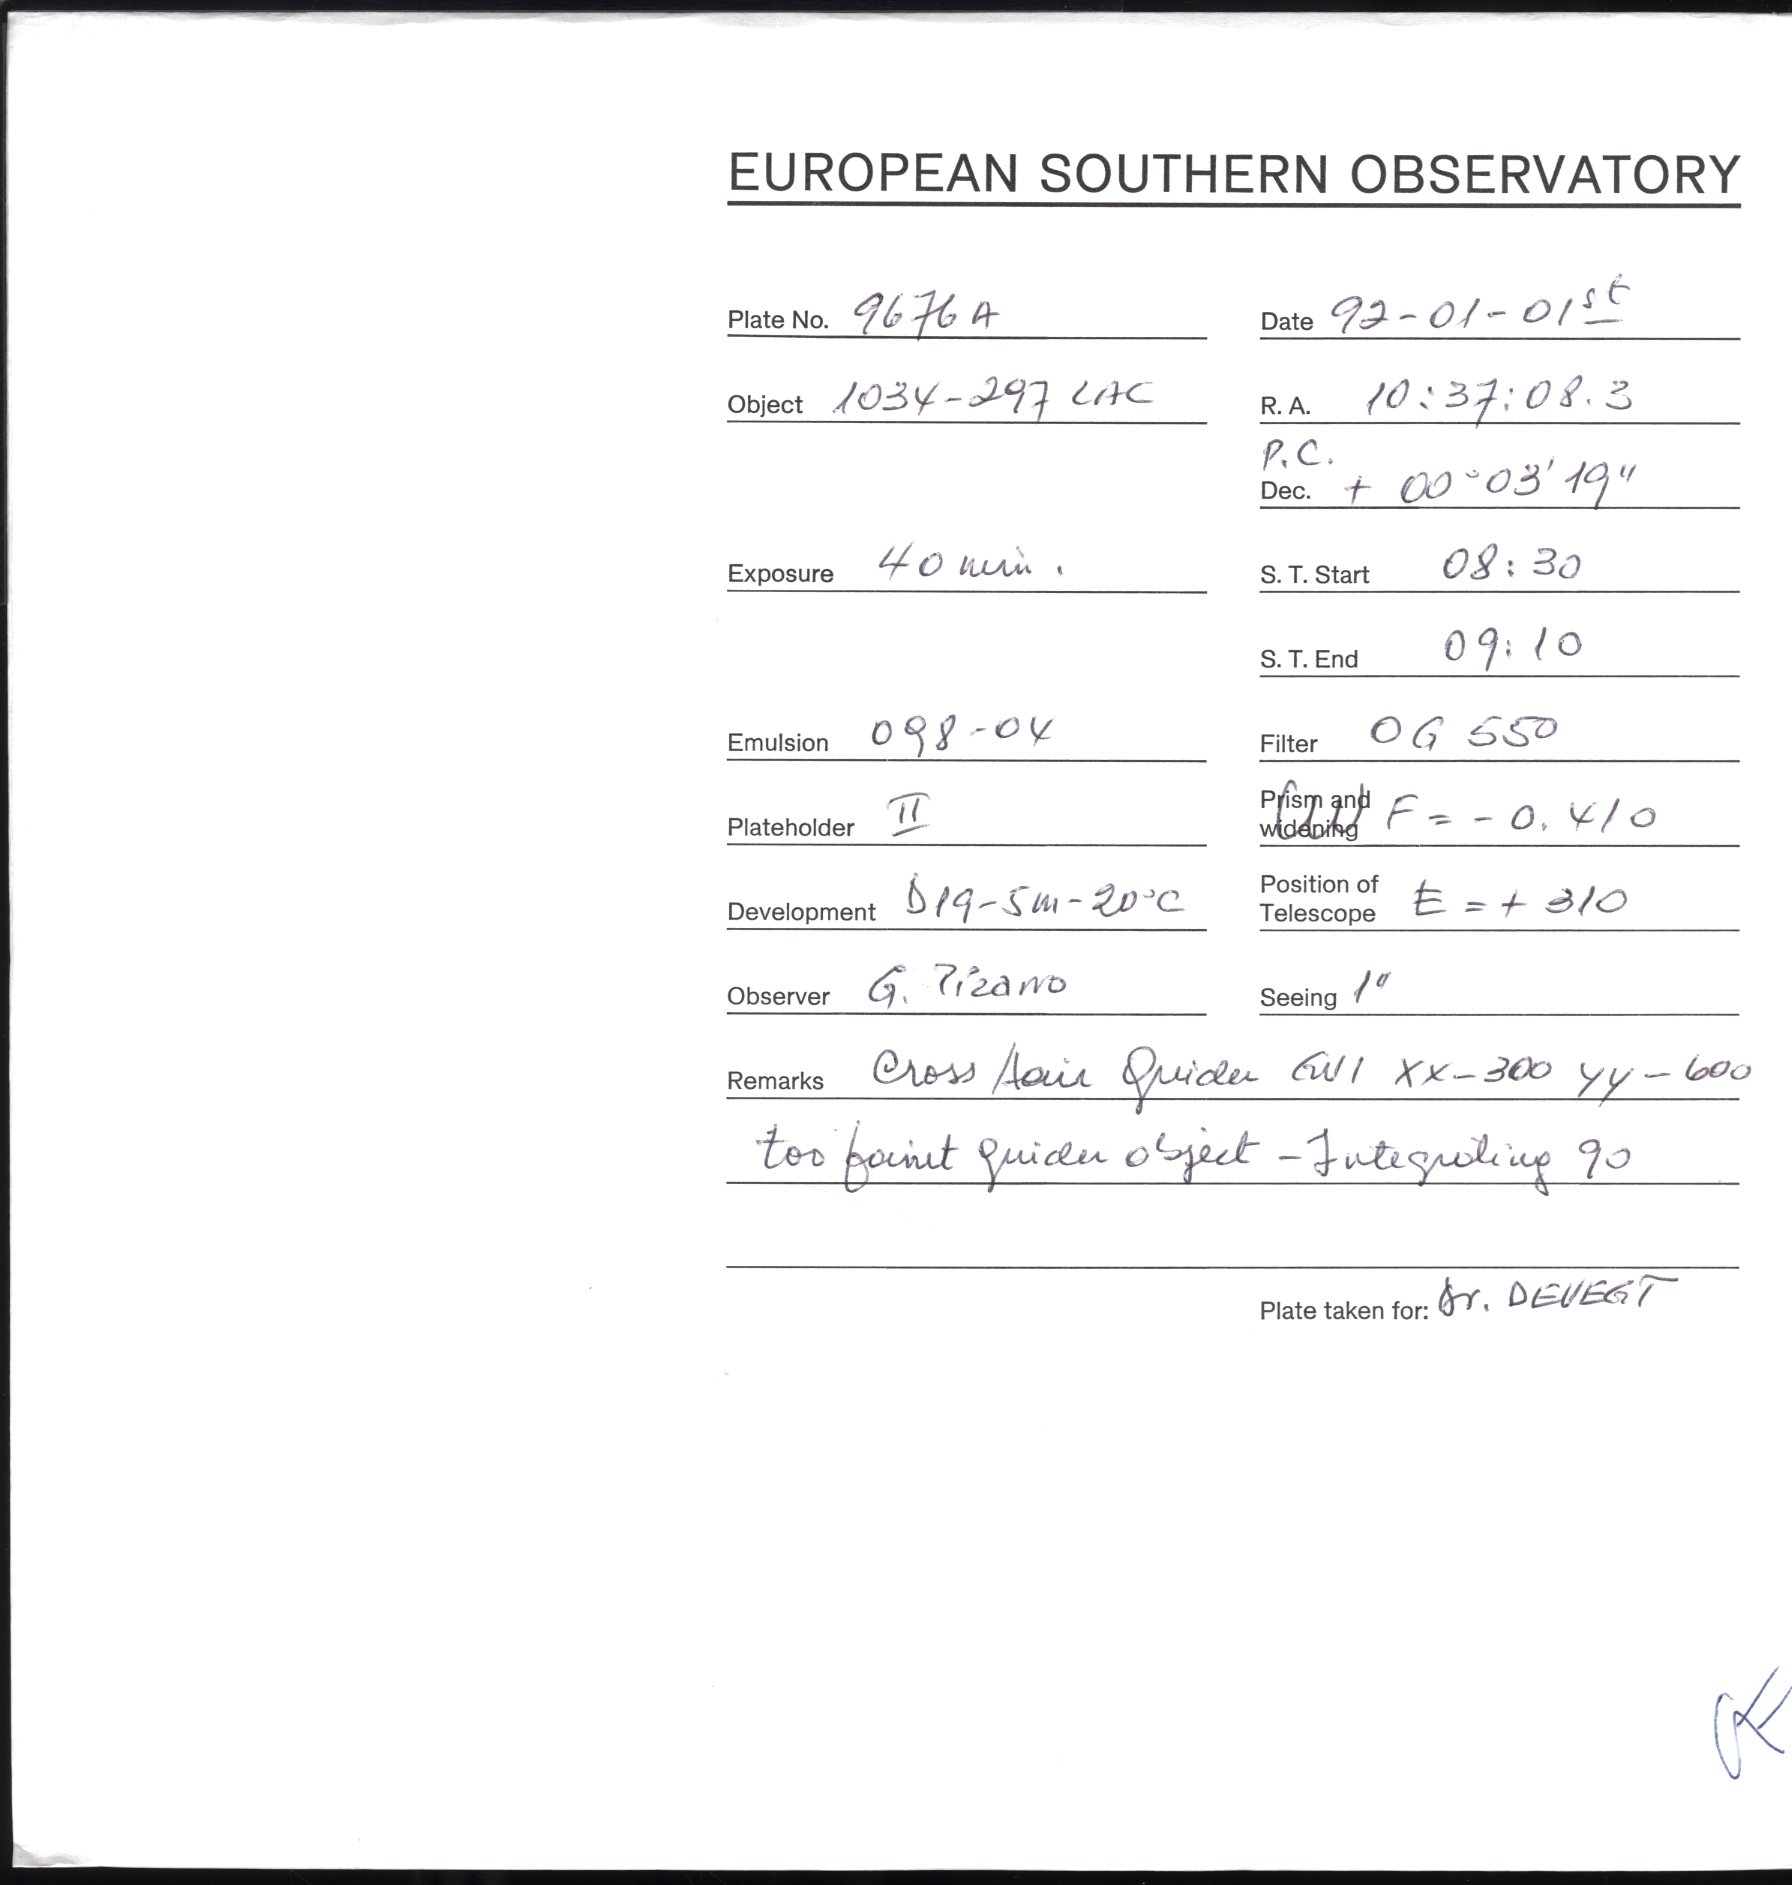 EUROPEAN SOUTHERN OBSERVATORY
Plate No. 9676 A
Date 92-01-01st
Object 1034-297 LAC
R. A. 10:37:08.3
P.C.
Dec. + 00°03'19"
Exposure 40 min.
S. T. Start 08:30
S. T. End 09:10
Emulsion 098-04
Filter OG 550
Plateholder II
Prism and widening F = - 0.410
Development D19-5m-20°C
Position of Telescope E = + 310
Observer G. Pizarro
Seeing 1"
Remarks Cross Hair Guider GW1 XX-300 YY-600
too faint guider object - Integrating 90
Plate taken for: Dr. DEVEGT